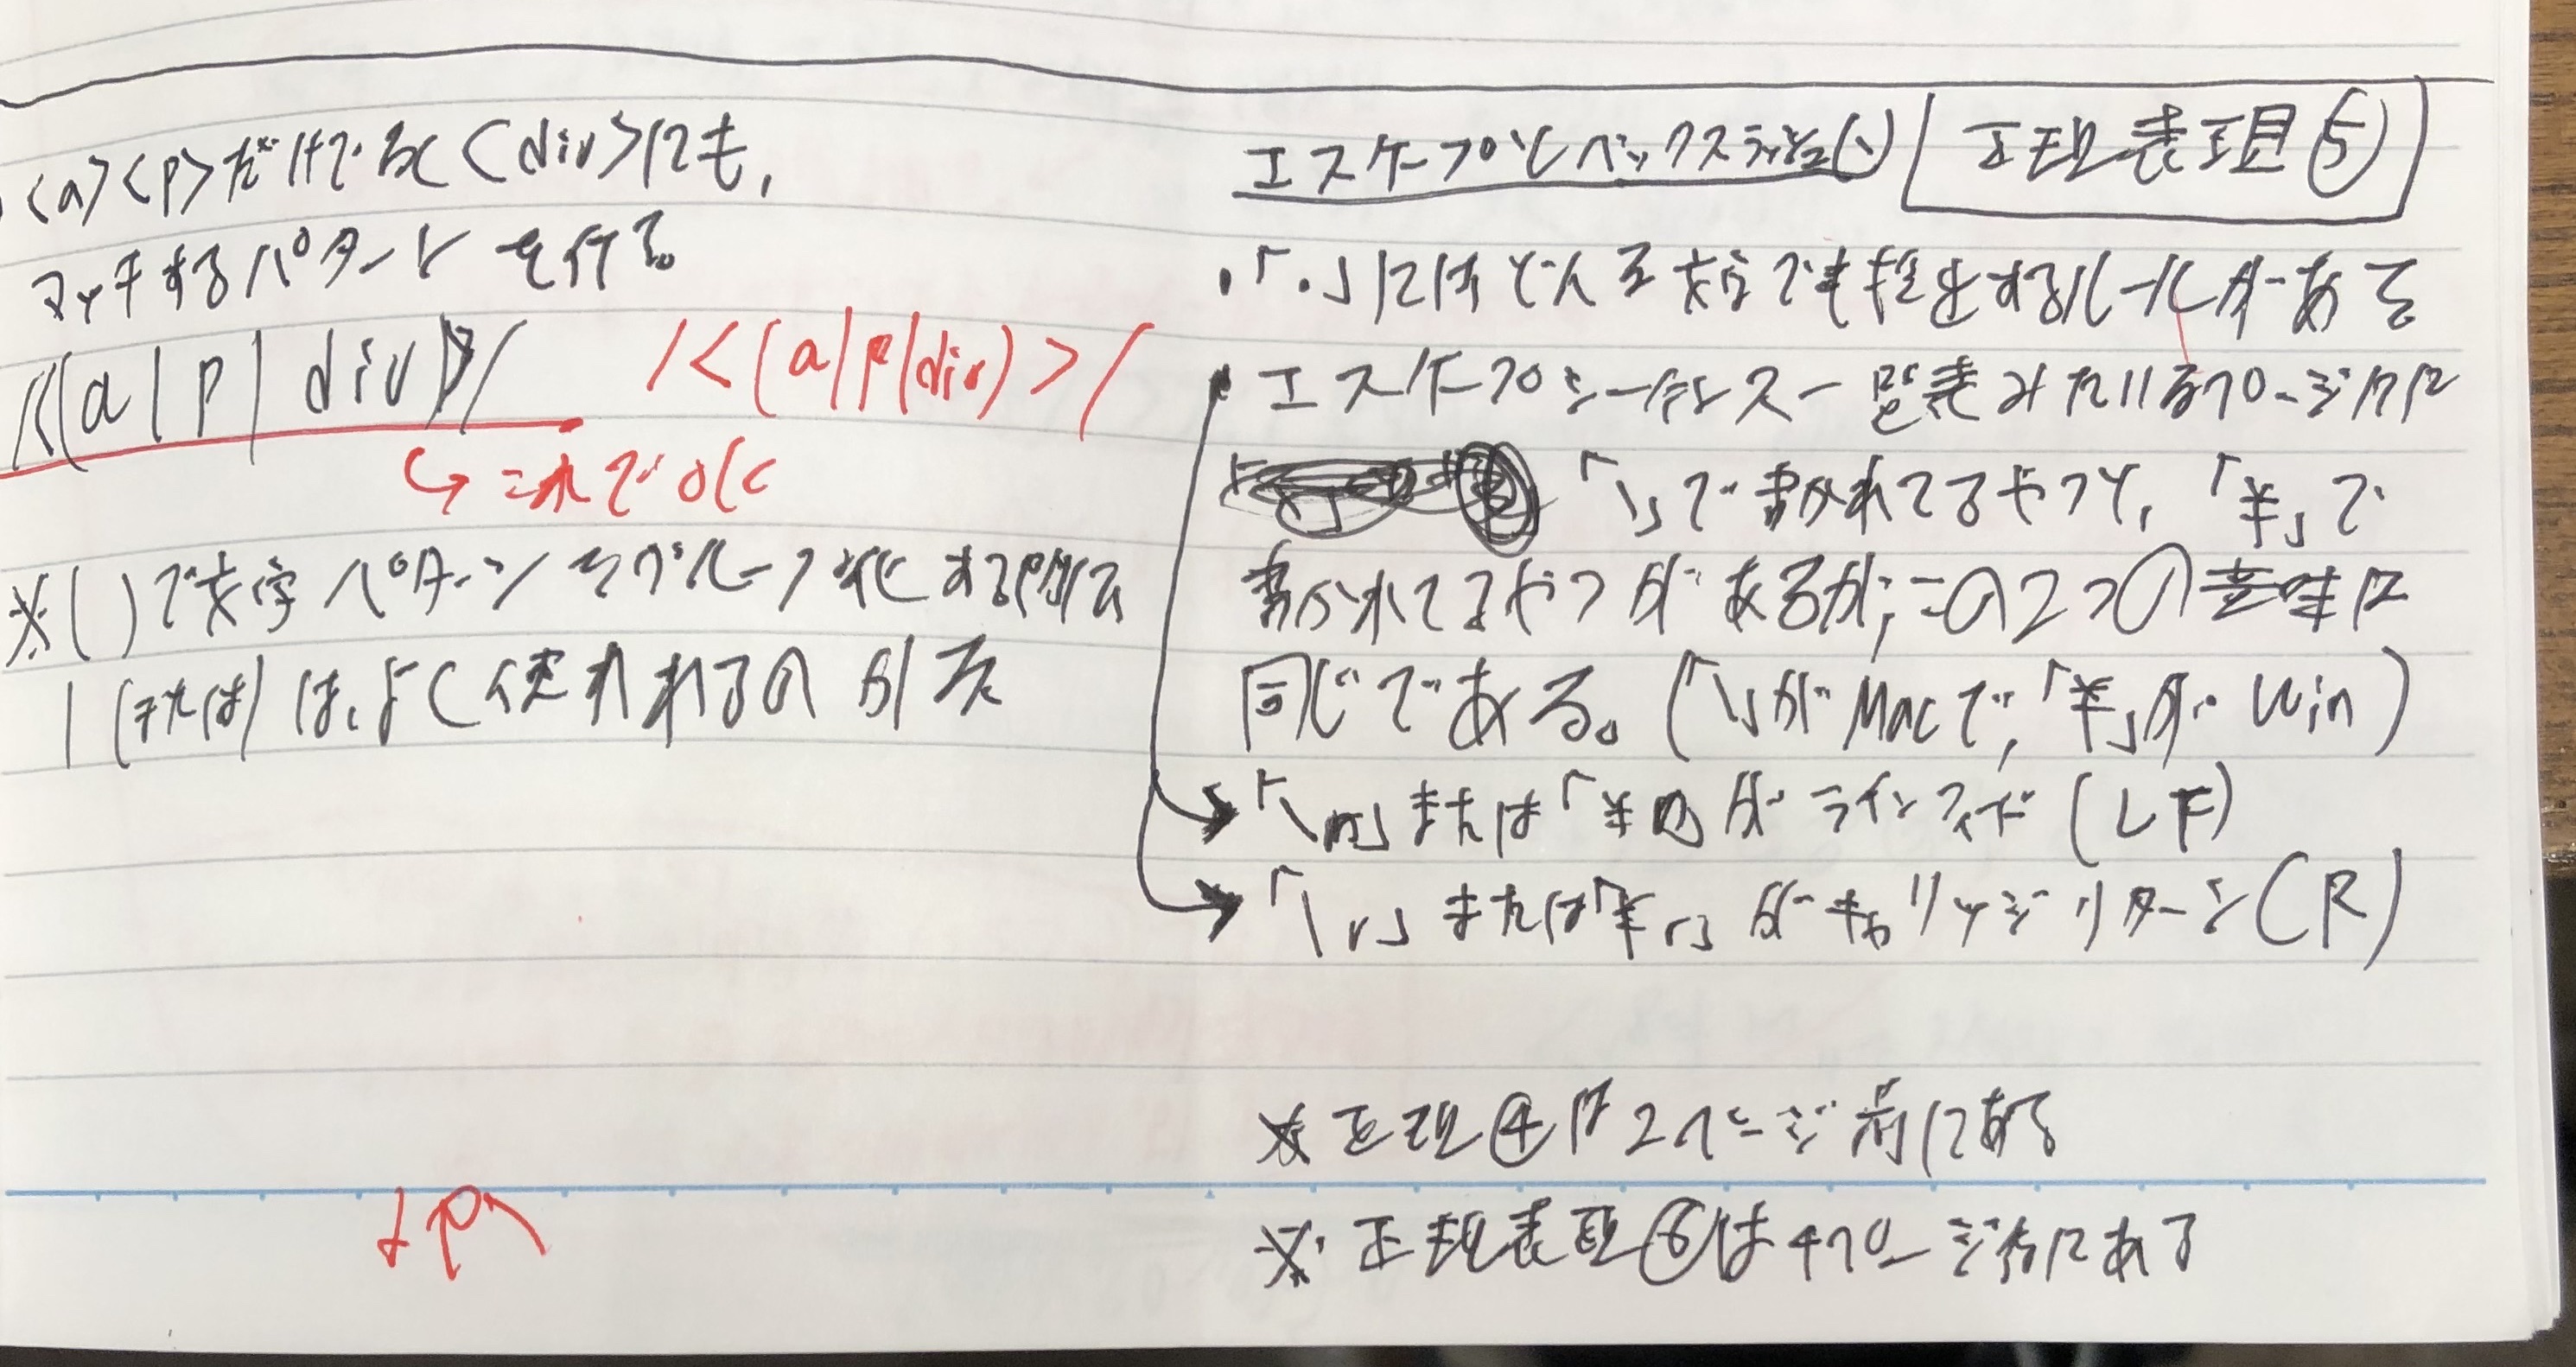 <a><p>だけでなく<div>にも、
マッチするパターンを作る。
/<(a|p|div)>/
/<(a|p|div)>/
↳これでOK
※( )で文字パターンをグループ化する時は
|(または)は、よく使われるのが
エスケープとバックスラッシュ(\)
正規表現⑤
・「.」にはどんな文字でも検出するルールがある
・エスケープシーケンス一覧表みたいなページに
「\」で書かれてるやつと、「¥」で
書かれてるやつがあるが、この2つの意味は
同じである。(「\」がMacで、「¥」が Win)
→「\n」または「¥n」がラインフィード(LF)
→「\r」または「¥r」がキャリッジリターン(R)
※正規④は2ページ前にある
※正規表現⑥は4ページ にある